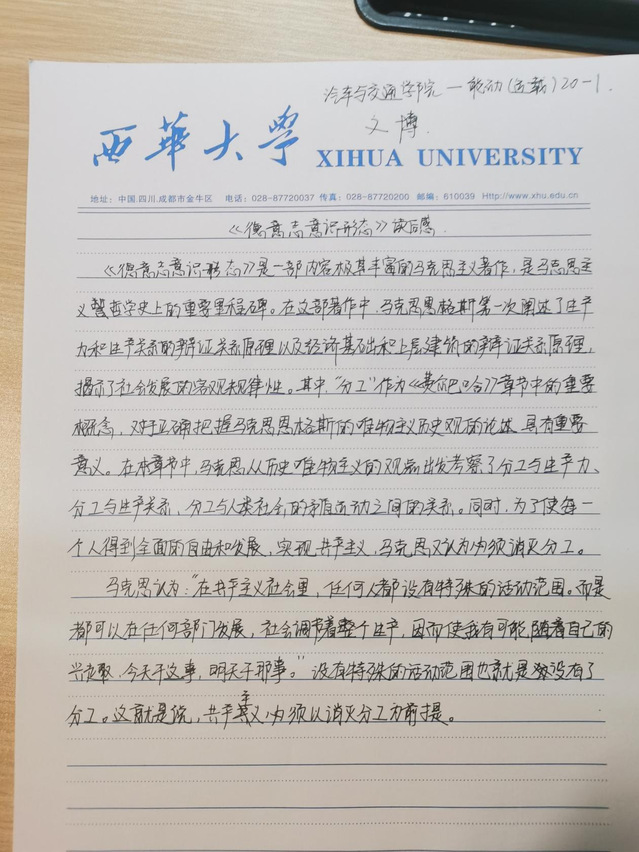 汽车与交通学院—能动(运载)20-1.
文博.
西華大學 XIHUA UNIVERSITY
地址：中国.四川.成都市金牛区 电话：028-87720037 传真：028-87720200 邮编：610039 Http://www.xhu.edu.cn
《德意志意识形态》读后感.
《德意志意识形态》是一部内容极其丰富的马克思主义著作，是马克思主
义哲学史上的重要里程碑。在这部著作中，马克思恩格斯第一次阐述了生产
力和生产关系的辩证关系原理以及经济基础和上层建筑的辩证关系原理，
揭示了社会发展的客观规律性。其中，“分工”作为《费尔巴哈》章节中的重要
概念，对于正确把握马克思恩格斯的唯物主义历史观的论述，具有重要
意义。在本章节中，马克思从历史唯物主义的观点出发考察了分工与生产力、
分工与生产关系，分工与人类社会的矛盾运动之间的关系。同时，为了使每一
个人得到全面的自由和发展，实现共产主义，马克思又认为必须消灭分工。
马克思认为：“在共产主义社会里，任何人都没有特殊的活动范围。而是
都可以在任何部门发展，社会调节着整个生产，因而使我有可能随着自己的
兴趣，今天干这事，明天干那事。”没有特殊的活动范围也就是没有了
分工。这就是说，共产主义必须以消灭分工为前提。